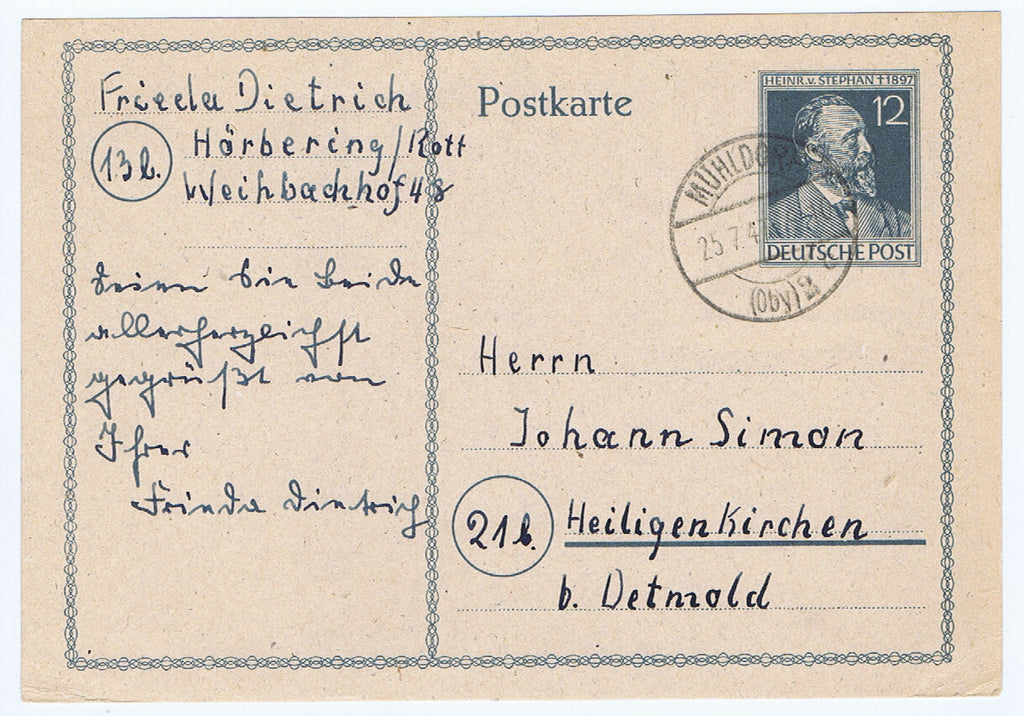 Frieda Dietrich
13b.
Hörbering/Rott
Weihbachhof 48
Seien Sie beide
allerherzlichst
gegrüßt von
Ihrer
Frieda Dietrich
Postkarte
HEINR. v. STEPHAN † 1897
12
DEUTSCHE POST
MÜHLDORF
25.7.4
(Oby) 2
Herrn
Johann Simon
21b.
Heiligenkirchen
b. Detmold